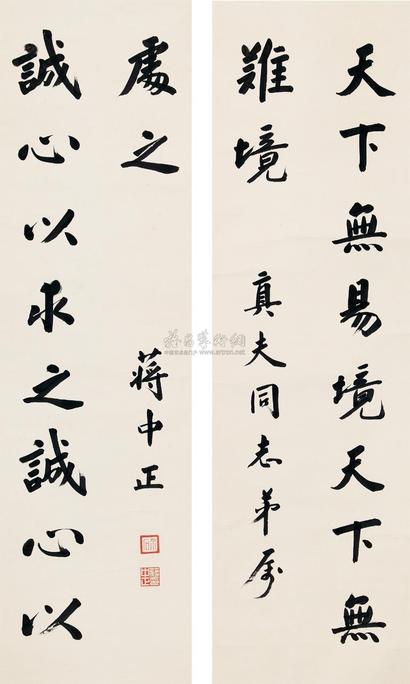 天下無易境天下無
難境
真夫同志弟属
誠心以求之誠心以
處之
蔣中正
www.artron.net